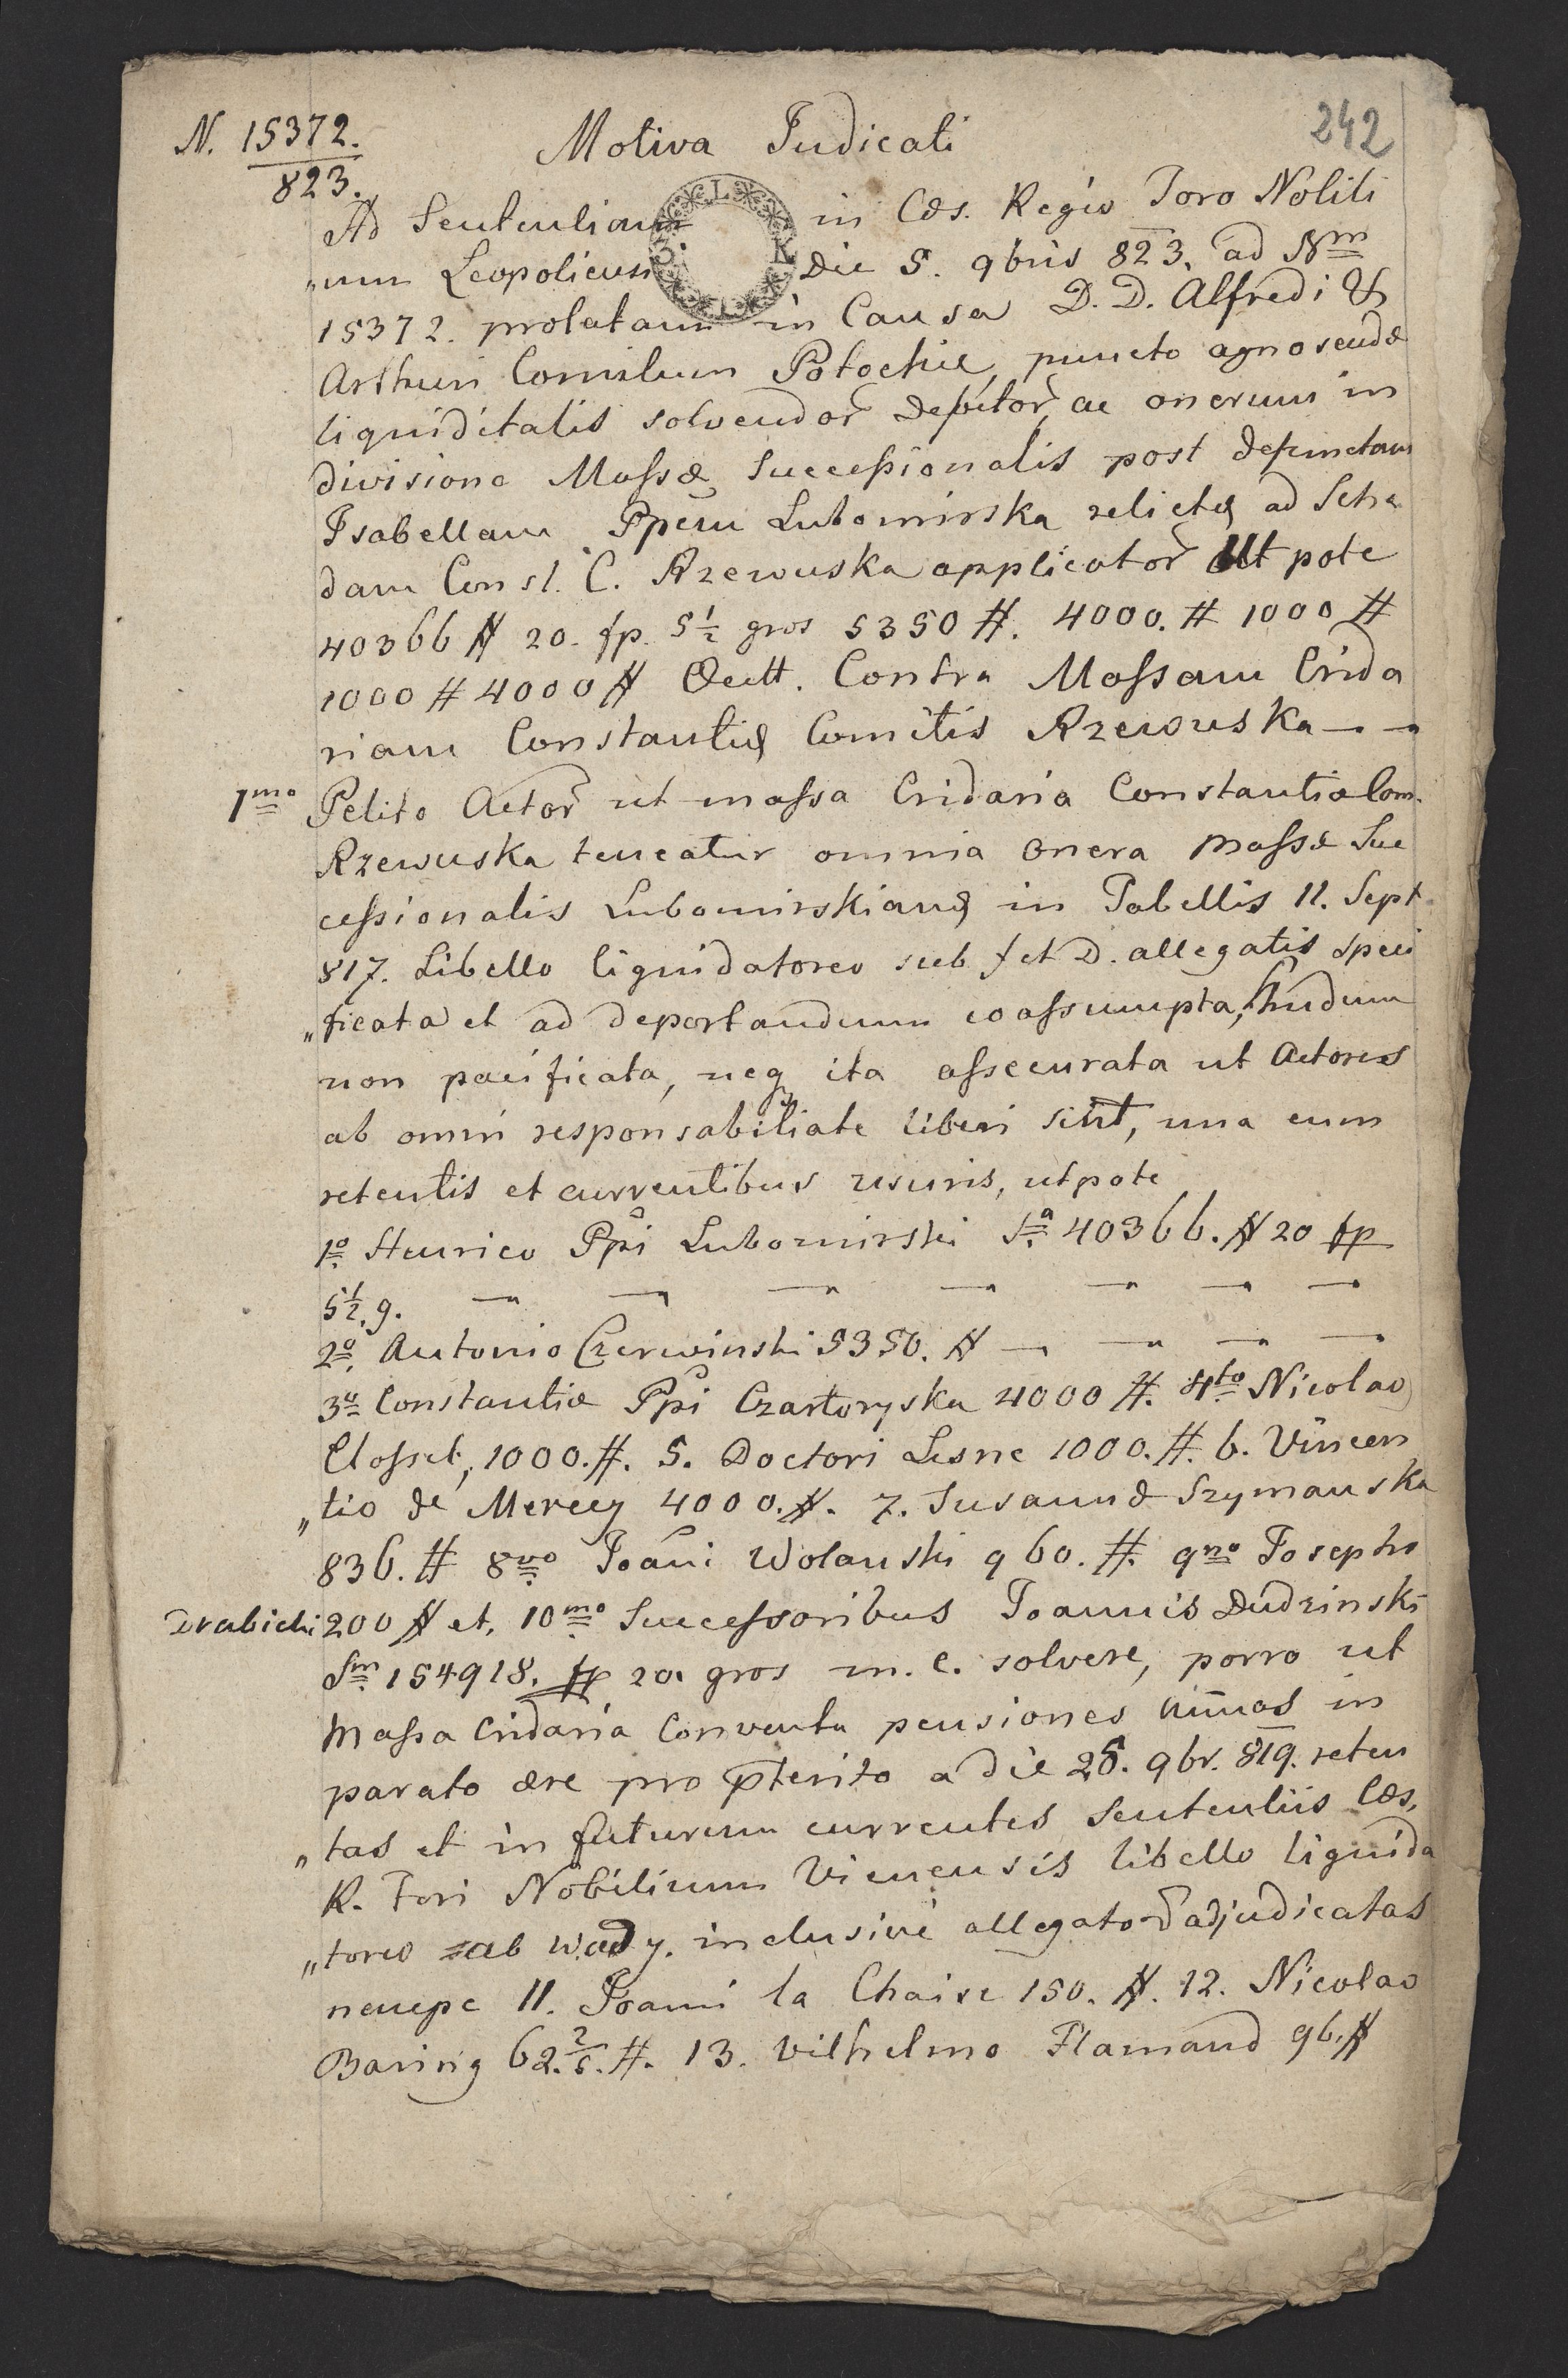 N. 15372.
823.
Motiva Judicati
242
Ad Sententiam in Cæs. Regio Foro Nobili
„um Leopoliensi Die 5. 9bris 823. ad Nm
15372. prolatam in Causa D. D. Alfredi &
Arthuri Comitum Potockie, puncto agnoscendæ
liquiditatis solvendor debitor, ac onerum in
divisione Massæ Successionalis post defunctam
Isabellam Ppem Lubomirska relictæ ad Sche
dam Const. C. Rzewuska applicator Ut pote
40366 # 20. fp. 5½ gros 5350 #. 4000. # 1000 #
1000 # 4000 # &ctt. Contra Massam Crida
riam Constantiæ Comitis Rzewuska
1mo Petito Actor ut massa Cridaria Constantiæ Com.
Rzewuska teneatur omnia onera Massæ Suc
cessionalis Lubomirskianæ in Tabellis 11. Sept
817. Libello liquidatoreo sub f et D. allegatis speci
„ficata et ad deportandum coassumpta, hudum
non pacificata, neq ita assecurata ut Actores
ab omni responsabiliate liberi sint, una cum
retentis et currentibus usuris, utpote
1o Henrico Ppi Lubomirski Sa 40366. # 20 fp
5½. g.
2o. Antonio Czerwinski 5350. #
3o Constantiæ Ppi Czartoryska 4000 #. 4to Nicolao
Closset, 1000. #. 5. Doctori Lesne 1000. #. 6. Vincen
„tio de Mercey 4000. #. 7. Susannæ Szymanska
836. # 8vo Joani Wolanski 960. #. 9no Josepho
Drabichi 200 # et, 10mo Successoribus Joannis Dudzinski
Sm 154918. fp 20. gros m. c. solvere, porro ut
Massa Cridaria Conventu pensiones annuas in
parato ære pro pterito a die 25. 9br. 819. reten
„tas et in futurum currentes Sententiis Cæs.
R. Fori Nobilium Vienensis libello liquida
„toreo ab W. ad y. inclusive allegator adjudicatas
nempe 11. Joanni la Chaise 150. #. 12. Nicolao
Baring 62. 2/5. #. 13. Vilhelmo Flamand 96. #